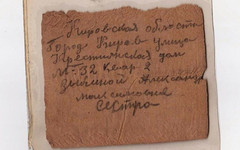 Кировская область
Город Киров улица
Крестьянская дом
№ 32 Квар 2
Зыкиной Александр
Максимовна
Сестра